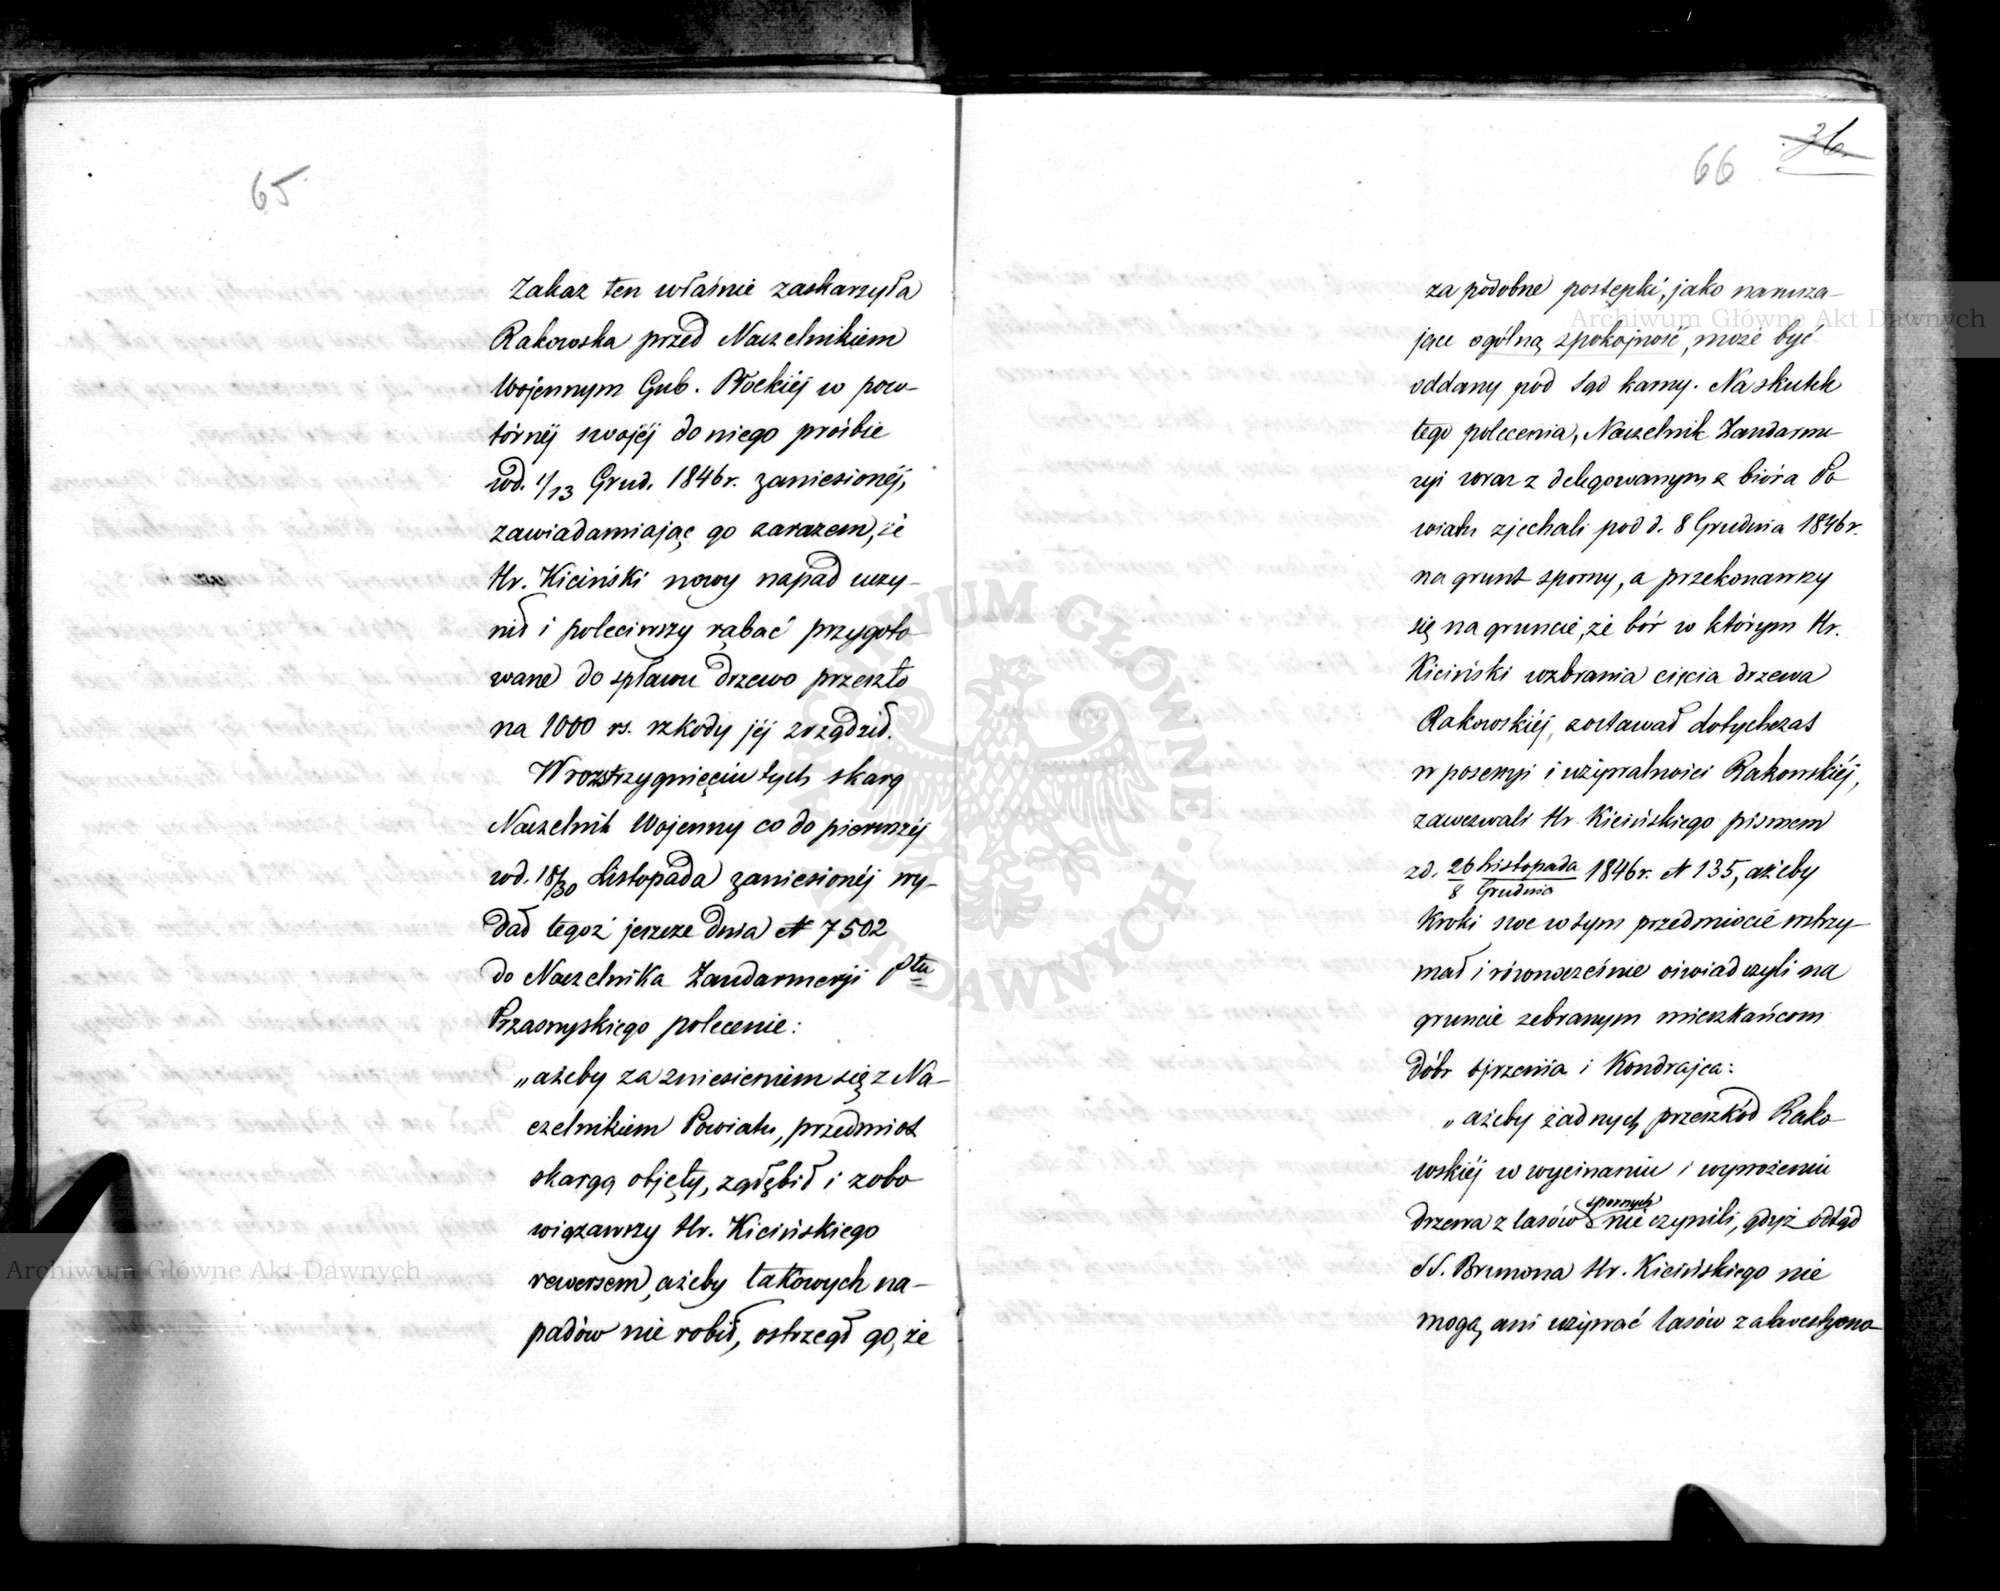 65
Zakaz ten właśnie zaskarzyła
Rakowska przed Naczelnikiem
Wojennym Gub. Płockiéj w powtórnéj
tórnéj swojéj do niego prośbie
wd. 1/13 Grud. 1846 r. zaniesionéj,
zawiadamiając go zarazem, że
Hr. Kiciński nowy napad uczy-
nił i poleciwszy rąbać przygoto-
wane do spławu drzewo przeszło
na 1000 rs. szkody jéj zrządził.
W rozstrzygnięciu tych skarg
Naczelnik Wojenny co do pierwszéj
wd. 18/30 Listopada zaniesionéj wy-
dał tegoż jeszcze dnia N 7502
do Naczelnika Żandarmerji Ptu
Przasnyskiego polecenie:
„ażeby za zniesieniem się z Na-
czelnikiem Powiatu, przedmiot
skargą objęty, zgłębił i zobo
wiązawszy Hr. Kicińskiego
rewersem, ażeby takowych na-
padów nie robił, ostrzegł go, że
66
36.
za podobne postępki, jako narusza-
jące ogólną spokojność, może być
oddany pod Sąd karny. Na skutek
tego polecenia, Naczelnik Żandarme
ryi wraz z delegowanym z bióra Po
wiatu zjechali pod d. 8 Grudnia 1846 r.
na grunt sporny, a przekonawszy
się na gruncie, że bór w którym Hr.
Kiciński wzbrania cięcia drzewa
Rakowskiéj, zostawał dotychczas
w posessyi i używalności Rakowskiéj,
zawezwali Hr. Kicińskiego pismem
z d. 26 Listopada/8 Grudnia 1846 r. N 135, ażeby
Kroki swe w tym przedmiocie wstrzy-
mał i równocześnie oświadczyli na
gruncie zebranym mieszkańcom
dóbr Ojrzenia i Kondrajca:
„ażeby żadnych przeszkód Rako
wskiéj w wycinaniu i wywożeniu
drzewa z lasów spornych nie czynili, gdyż odtąd
JW. Brunona Hr. Kicińskiego nie
mogą ani używać lasów zakwestyono-
Archiwum Główne Akt Dawnych
Archiwum Główne Akt Dawnych
ARCHIWUM GŁÓWNE AKT DAWNYCH